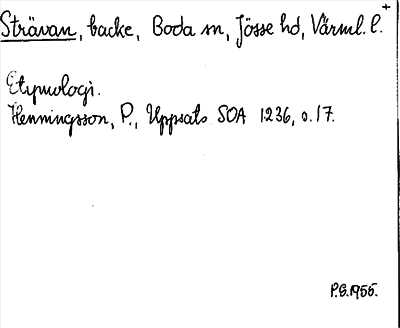 +
Strävan, backe, Boda sn, Jösse hd, Värml. l.
Etymologi.
Henningsson, P., Uppsats SOA 1236, s. 17.
P.G. 1955.